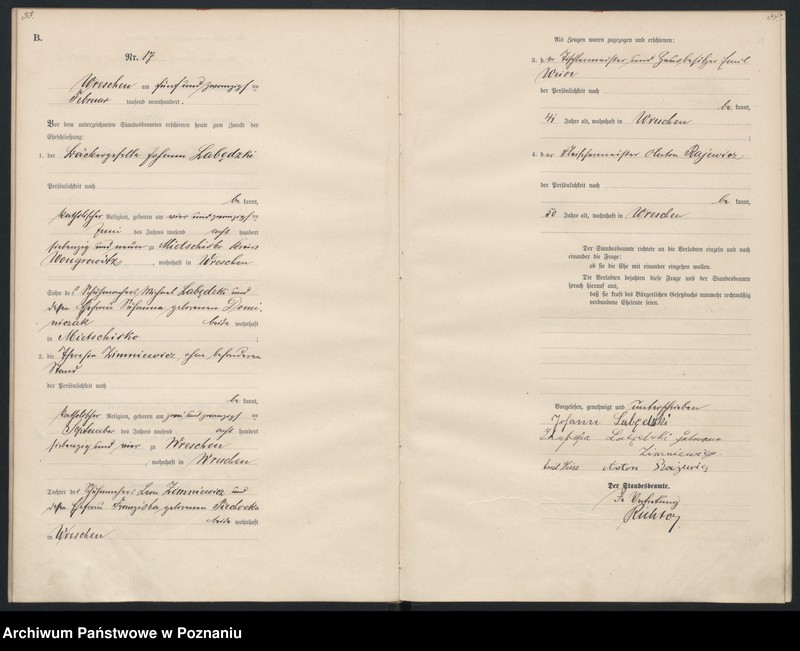 33.
B.
Nr. 17
Wreschen am fünf und zwanzigsten
Februar tausend neunhundert.
Vor dem unterzeichneten Standesbeamten erschienen heute zum Zwecke der
Eheschließung:
1. der Bäckergeselle Johann Łabędzki
der Persönlichkeit nach
be kannt,
katholischer Religion, geboren am vier und zwanzigsten
Juni des Jahres tausend acht hundert
siebenzig und neun zu Mietschisko Kreis
Wongrowitz, wohnhaft in Wreschen
Sohn des Schuhmachers Michael Łabędzki und
dessen Ehefrau Susanna geborenen Domi-
niczak beide wohnhaft
in Mietschisko ;
2. die Theresia Zimniewicz, ohne besonderen
Stand
der Persönlichkeit nach
be kannt,
katholischer Religion, geboren am zwei und zwanzigsten
September des Jahres tausend acht hundert
siebenzig und vier zu Wreschen
, wohnhaft in Wreschen
Tochter des Schuhmachers Leon Zimniewicz und
dessen Ehefrau Franziska geborenen Piechocka
beide wohnhaft
in Wreschen
34.
Als Zeugen waren zugezogen und erschienen:
3. der Tischlermeister und Hausbesitzer Emil
Weise
der Persönlichkeit nach
be kannt,
41 Jahre alt, wohnhaft in Wreschen
;
4. der Fleischermeister Anton Rajewicz
der Persönlichkeit nach
be kannt,
50 Jahre alt, wohnhaft in Wreschen
Der Standesbeamte richtete an die Verlobten einzeln und nach
einander die Frage:
ob sie die Ehe mit einander eingehen wollen.
Die Verlobten bejahten diese Frage und der Standesbeamte
sprach hierauf aus,
daß sie kraft des Bürgerlichen Gesetzbuchs nunmehr rechtmäßig
verbundene Eheleute seien.
Vorgelesen, genehmigt und unterschrieben
Johann Łabędzki
Theresia Łabędzki geborene
Zimniewicz.
Emil Weise Anton Rajewicz
Der Standesbeamte.
In Vertretung
Archiwum Państwowe w Poznaniu